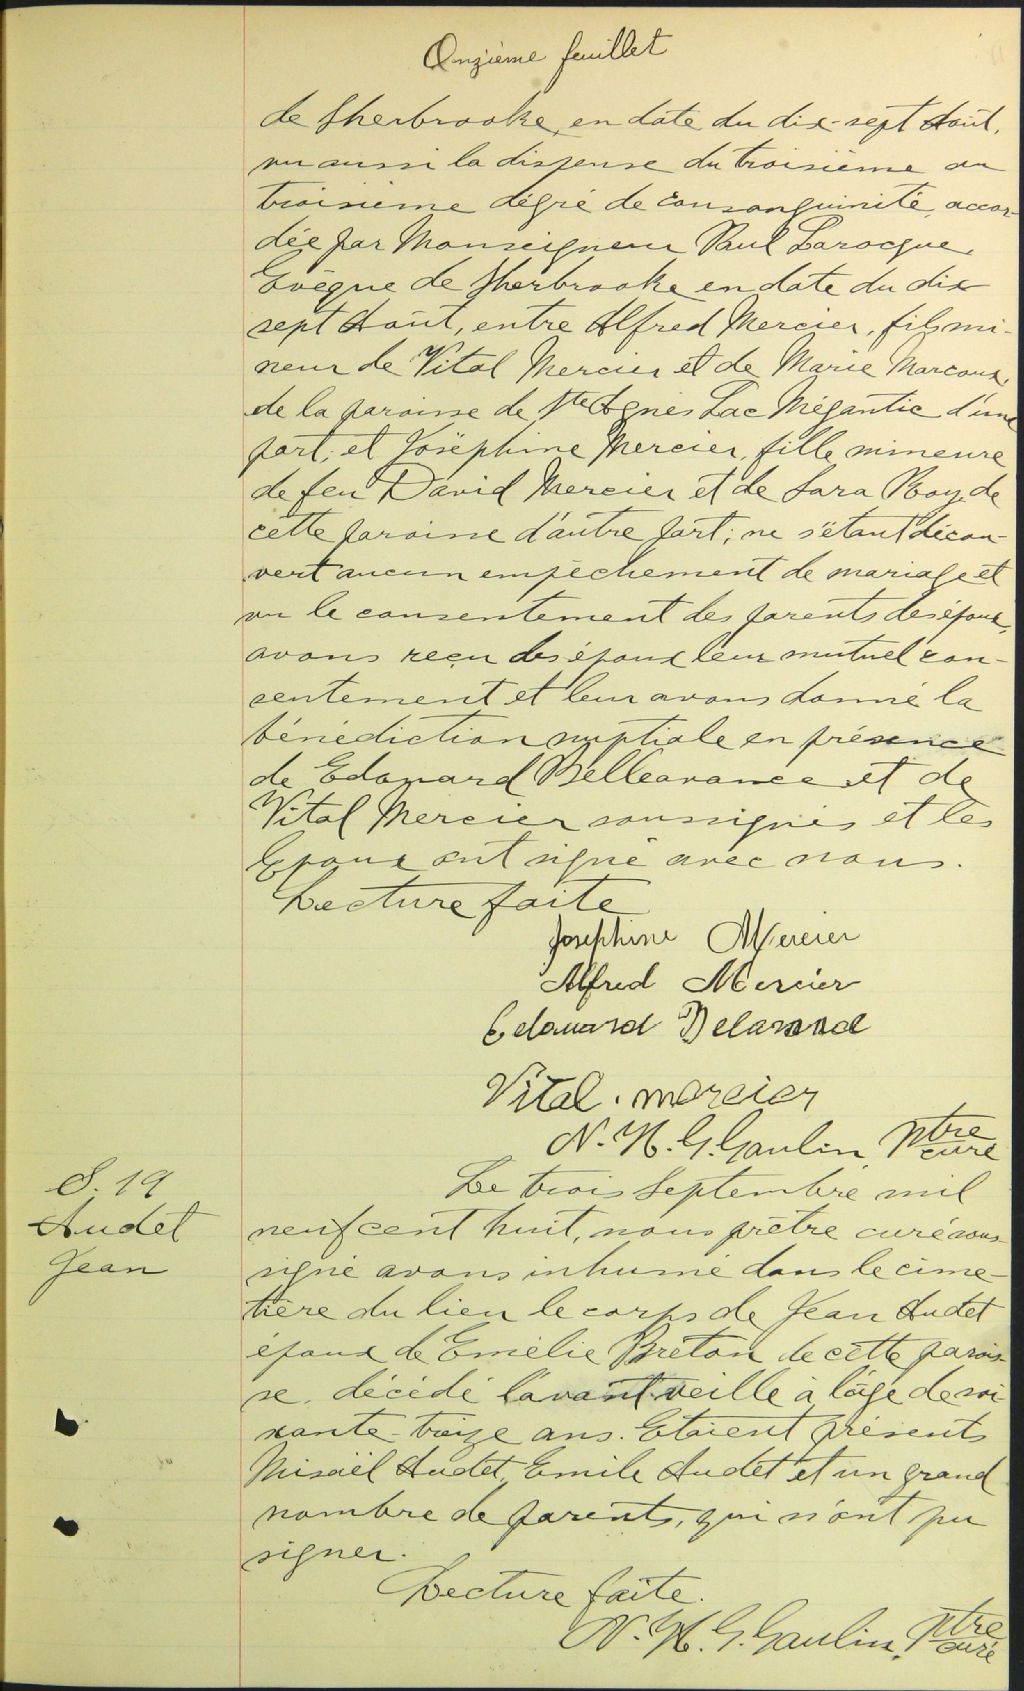 Onzième feuillet
de Sherbrooke, en date du dix-sept Août,
vu aussi la dispense du troisième au
troisième dégré de consanguinité, accor-
dée par Monseigneur Paul Larocque,
Evêque de Sherbrooke en date du dix
sept Août, entre Alfred Mercier, fils mi-
neur de Vital Mercier et de Marie Marcoux,
de la paroisse de Ste Agnès Lac Mégantic d'une
part; et Joséphine Mercier, fille mineure
de feu David Mercier et de Sara Roy, de
cette paroisse d'autre part; ne s'étant décou-
vert aucun empêchement de mariage et
vu le consentement des parents des époux,
avons reçu des époux leur mutuel con-
sentement et leur avons donné la
bénédiction nuptiale en présence
de Edouard Belleavance et de
Vital Mercier soussignés et les
Epoux ont signé avec nous.
Lecture faite
Josephine Mercier
Alfred Mercier
Edouard
Vital. mercier
N. H. G. Gaulin, Ptre curé
S. 19
Audet
Jean
Le trois Septembre mil
neuf cent huit, nous prêtre curé sous-
signé avons inhumé dans le cime-
tière du lieu le corps de Jean Audet
époux de Emélie Breton de cette parois-
se, décédé l'avant veille à l'âge de soi-
xante-treize ans. Etaient présents
Misaël Audet, Emile Audet et un grand
nombre de parents, qui n'ont pu
signer.
Lecture faite.
N. H. G. Gaulin, Ptre curé